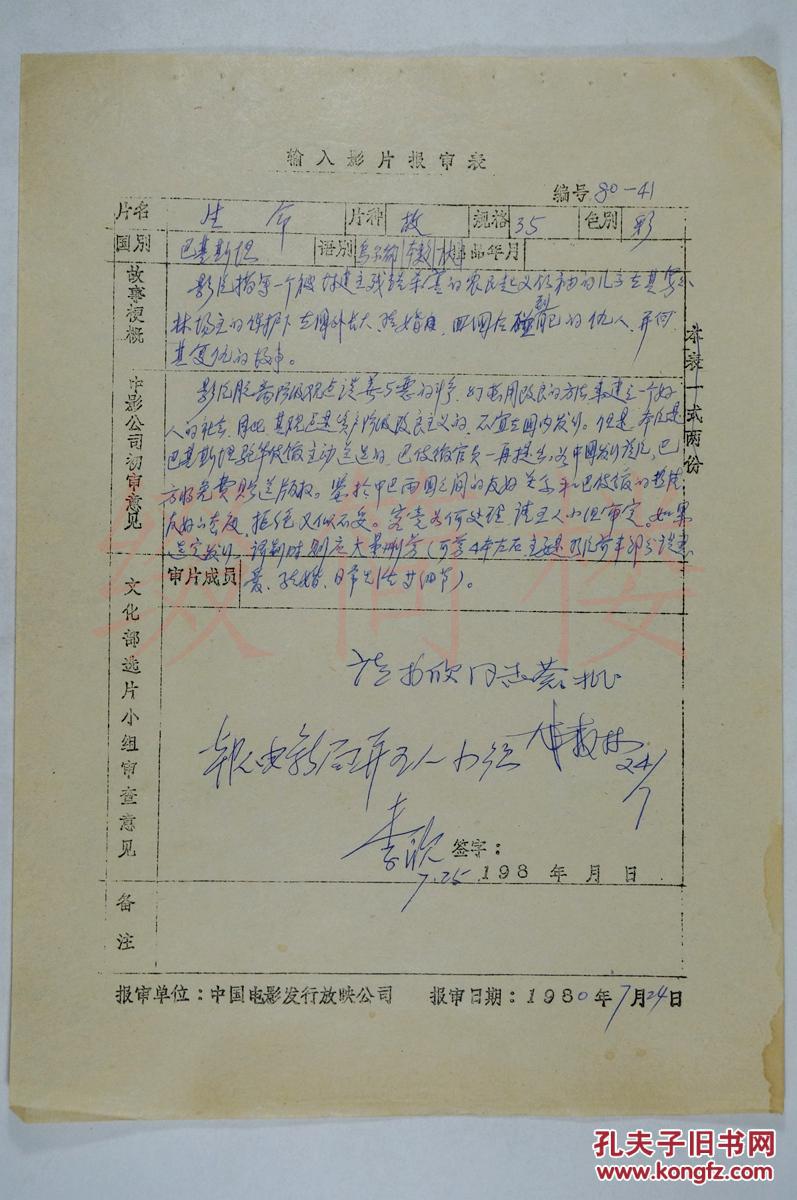 输入影片报审表
编号 80-41
片名 生命 片种 故 规格 35 色别 彩
国别 巴基斯坦 语别 乌尔都 本数 出品年月
故事梗概
影片描写一个被封建主残踏杀害的农民起义领袖的儿子在某
林场主的保护下在国外长大、结婚后，回国后碰到的仇人，并向
其复仇的故事。
中影公司初审意见
影片脱离阶级观点谈善与恶的斗争，幻想用改良的方法来建立一个好
人的社会，因此，其观点是资产阶级改良主义的，不宜在国内发行。但是，本片是
巴基斯坦驻华使馆主动送选的，巴使馆官员一再提出为中国发行该片，巴
方将免费赠送版权。鉴于中巴两国之间的友好关系和巴使馆的热情
友好的态度，拒绝又似不妥。究竟如何处理，请五人小组审定。如果
选定发行，译制时则应大量删剪（可剪4本左右主要是片前半部分谈恋
爱、结婚、日常生活等细节）。
本表一式两份
审片成员
文化部选片小组审查意见
请李欣同志审批
24/7
报电影局并五人小组
李欣
签字：
7.25 198 年 月 日
备注
报审单位：中国电影发行放映公司 报审日期：1980年7月24日
缀简楼
孔夫子旧书网
www.kongfz.com